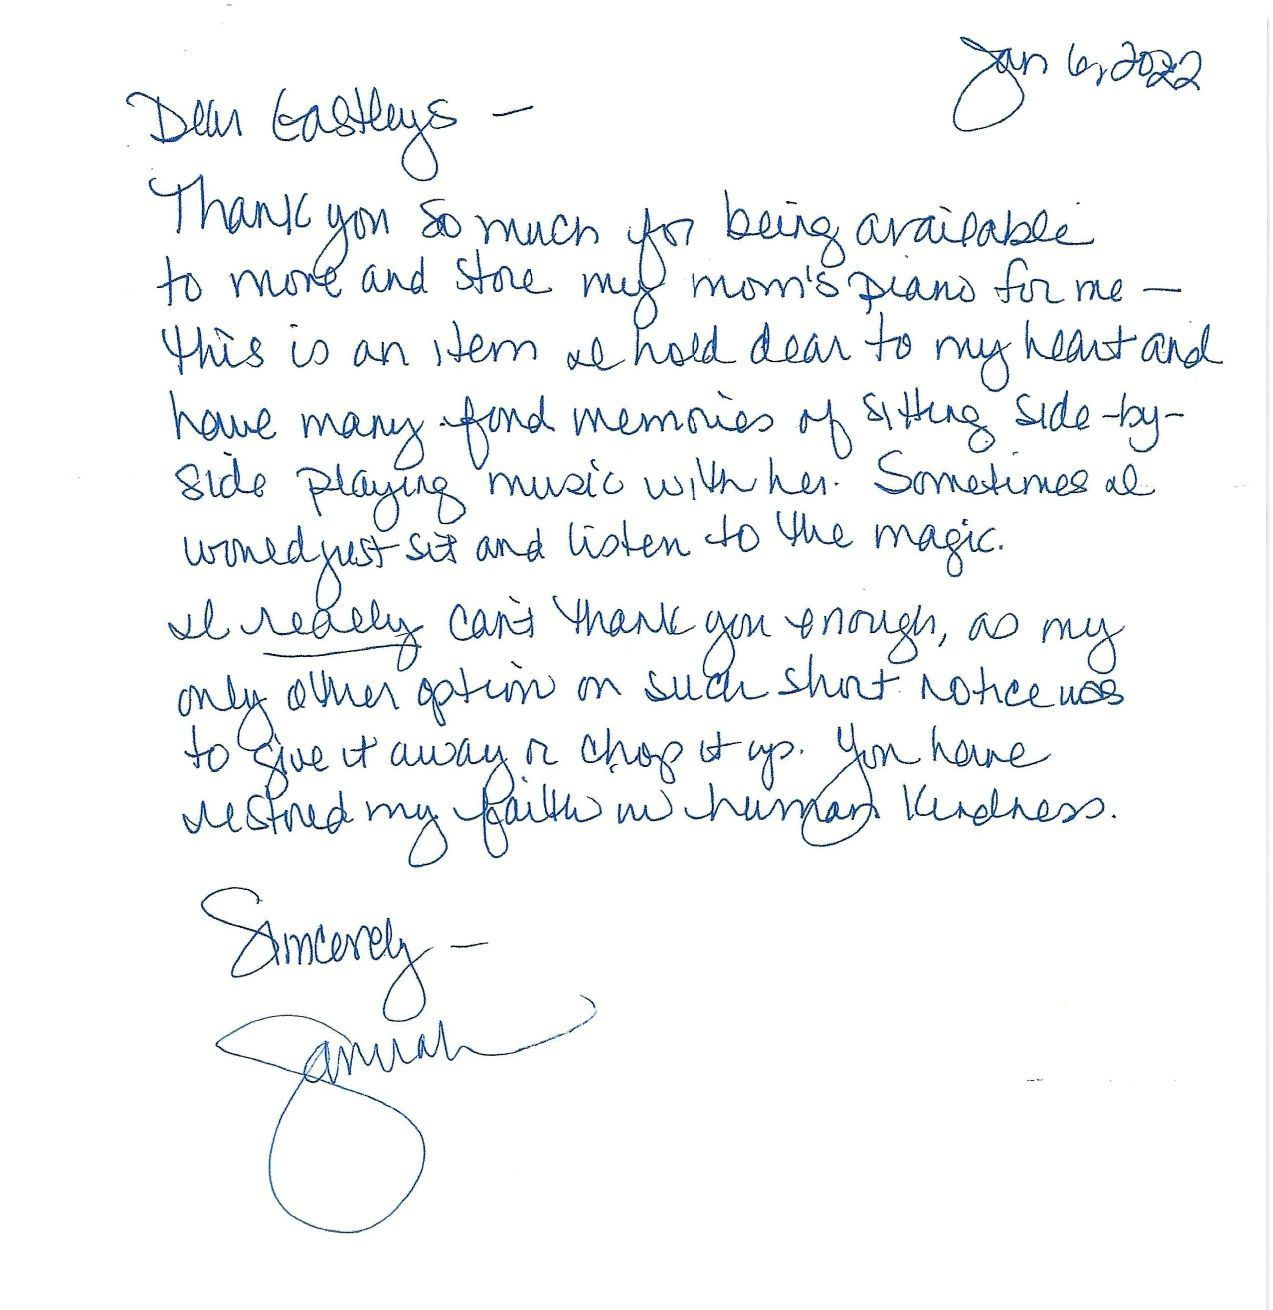 Jan 6, 2022
Dear Eastleys –
Thank you so much for being available
to move and store my mom's piano for me –
this is an item I hold dear to my heart and
have many fond memories of sitting side-by-
side playing music with her. Sometimes I
would just sit and listen to the magic.
I really can't thank you enough, as my
only other option on such short notice was
to give it away or chop it up. You have
restored my faith in human kindness.
Sincerely –